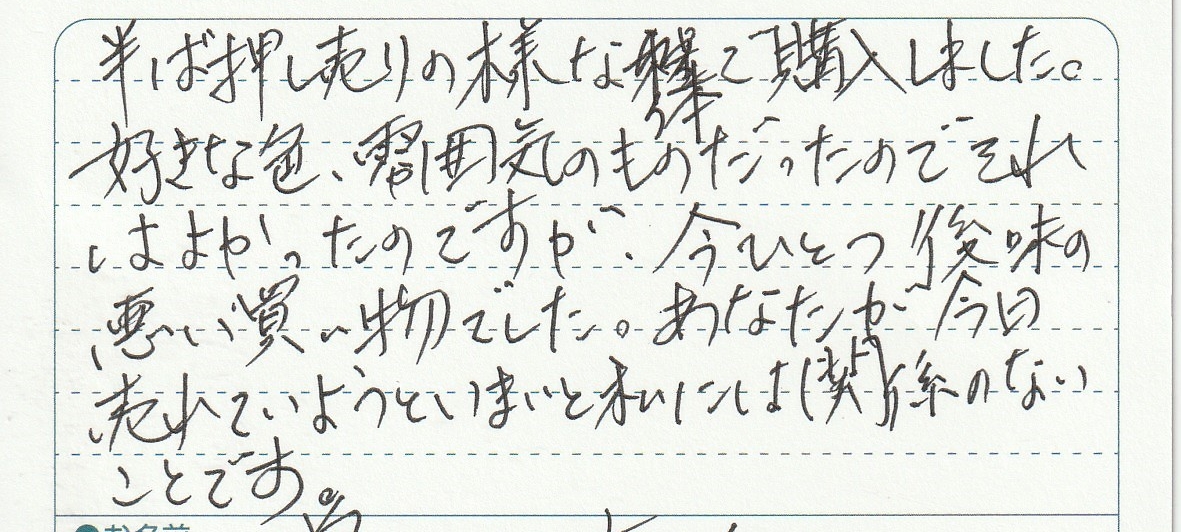 半ば押し売りの様な体で購入しました。
好きな色、雰囲気のものだったのでそれ
はよかったのですが、今ひとつ後味の
悪い買い物でした。あなたが今日
売れていようといまいと私には関係のない
ことです。
お名前